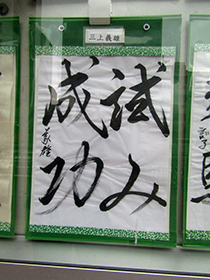 三上義雄
試み
成功
義雄